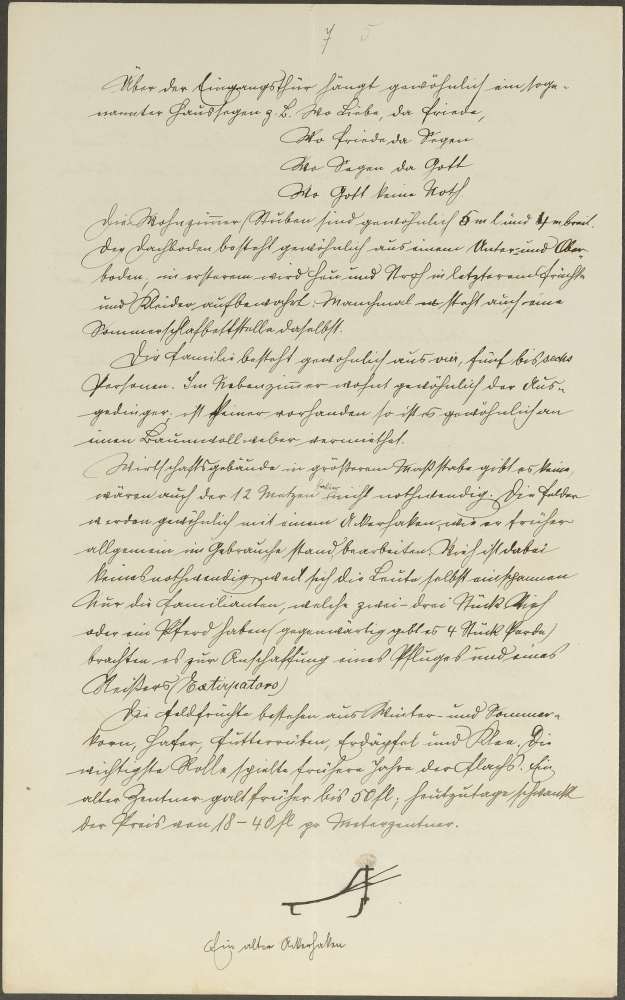 7 5
Über der Eingangsthür hängt gewöhnlich ein soge-
nannter Haussegen z. B. Wo Liebe, da Friede,
Wo Friede da Segen
Wo Segen da Gott
Wo Gott keine Noth
Die Wohnzimmer (Stuben sind gewöhnlich 5 m l und 4 m breit.
Der Dachboden besteht gewöhnlich aus einem Unter- und Ober-
boden, in ersterem wird Heu und Stroh in letzterem Früchte
und Kleider aufbewahrt. Manchmal steht auch eine
Sommerschlafbettstelle daselbst.
Die Familie besteht gewöhnlich aus vier, fünf bis sechs
Personen. Im Nebenzimmer wohnt gewöhnlich der Aus-
gedinger; ist keiner vorhanden so ist es gewöhnlich an
einen Baumwollweber vermiethet.
Wirtschaftsgebäude in größerem Maßstabe gibt es keine,
wären auch der 12 Metzen nicht nothwendig. Die Felder
werden gewöhnlich mit einem Ackerhaken, wie er früher
allgemein im Gebrauche stand bearbeiten. Vieh ist dabei
keines nothwendig, weil sich die Leute selbst einspannen
Nur die Familianten, welche zwei-drei Stück Vieh
oder ein Pferd haben (gegenwärtig gibt es 4 Stück Pferde)
brachten es zur Anschaffung eines Pfluges und eines
Reißers (Extirpators)
Die Feldfrüchte bestehen aus Winter- und Sommer-
korn, Hafer, Futterrüben, Erdäpfel und Klee. Die
wichtigste Rolle spielte frühere Jahre der Flachs. Ein
alter Zentner galt früher bis 50 fl; heutzutage schwankt
der Preis von 18-40 fl pr Meterzentner.
Ein alter Ackerhaken